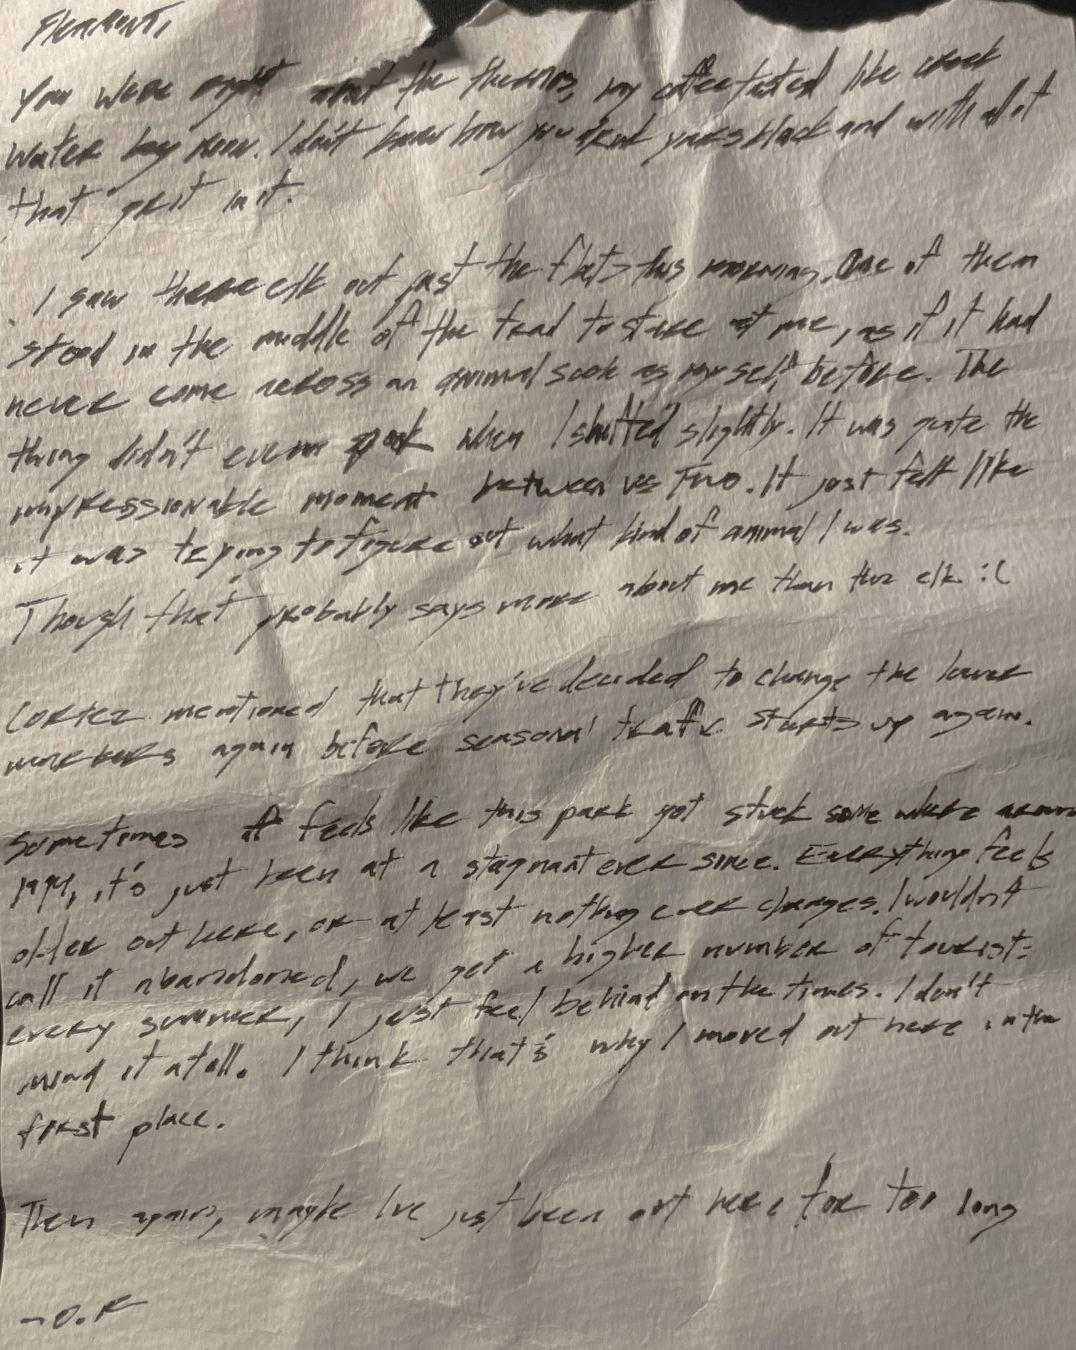 You were right about the thermos, my coffee tasted like creek
water by noon. I don't know how you drink yours black and with all of
that grit in it.
I saw three elk out past the flats this morning. One of them
stood in the middle of the trail to stare at me, as if it had
never come across an animal such as myself before. The
thing didn't even when I shifted slightly. It was quite the
impressionable moment between us two. It just felt like
it was trying to figure out what kind of animal I was.
Though that probably says more about me than the elk :(
Cortez mentioned that they've decided to change the lower
markers again before seasonal traffic starts up again.
Sometimes it feels like this park got stuck some where
it's just been at a stagnant ever since. Everything feels
older out here, or at least nothing ever changes. I wouldn't
call it abandoned, we get a higher number of tourists
every summer, I just feel behind on the times. I don't
mind it at all. I think that's why I moved out here in the
first place.
Then again, maybe I've just been out here for too long